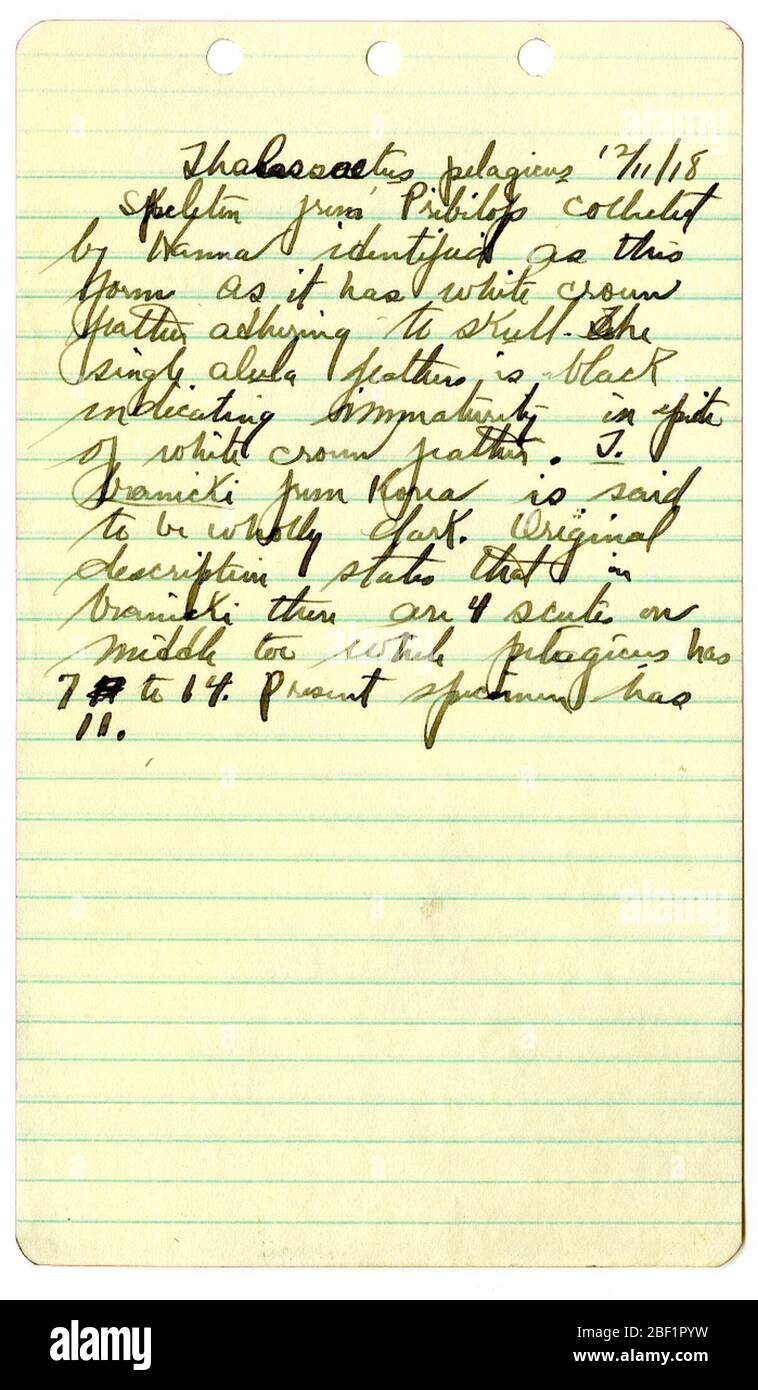 Thalassoaetus pelagicus 12/11/18
Skeleton from Pribilofs collected
by Hanna identified as this
form as it has white crown
feathers adhering to skull. The
single alula feather is black
indicating immaturity in spite
of white crown feathers. T.
branicki from Korea is said
to be wholly dark. Original
description states that in
branicki there are 4 scutes on
middle toe while pelagicus has
7 to 14. Present specimen has
11.
alamy
alamy
a
a
alamy
Image ID: 2BF1PYW
www.alamy.com